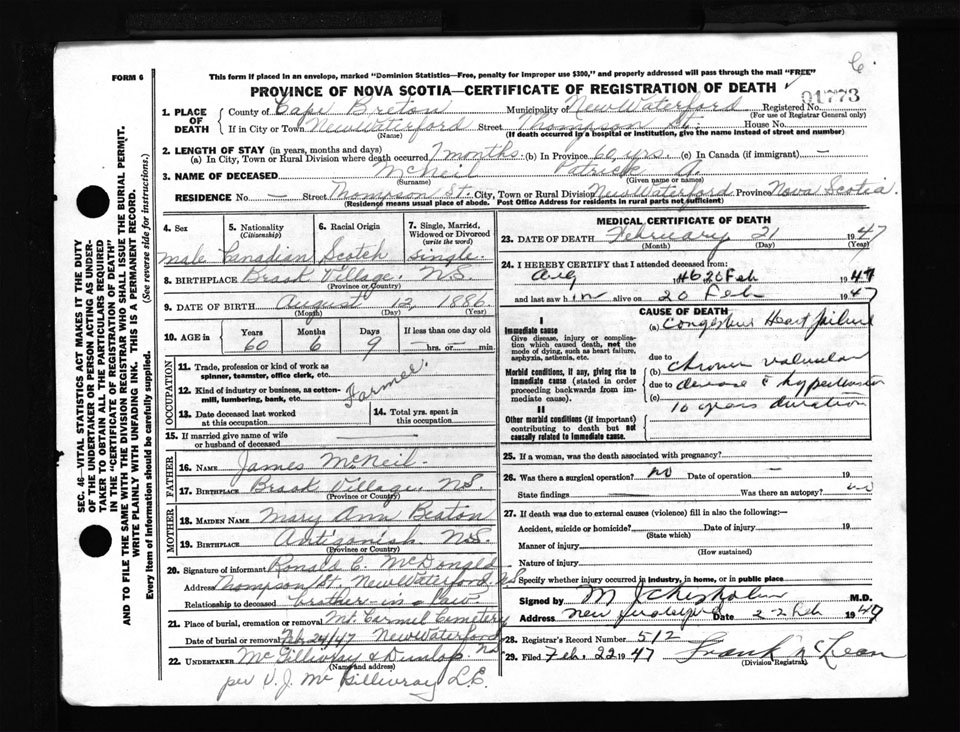 6
FORM 6
This form if placed in an envelope, marked "Dominion Statistics—Free, penalty for improper use $300," and properly addressed will pass through the mail "FREE"
PROVINCE OF NOVA SCOTIA—CERTIFICATE OF REGISTRATION OF DEATH
01773
1. PLACE OF DEATH
County of Cape Breton Municipality of New Waterford Registered No.
(For use of Registrar General only)
If in City or Town New Waterford Street Thompson St. House No.
(Name) (If death occurred in a hospital or institution, give the name instead of street and number)
2. LENGTH OF STAY (in years, months and days)
(a) In City, Town or Rural Division where death occurred 7 months. (b) In Province 60 yrs. (c) In Canada (if immigrant) —
3. NAME OF DECEASED McNeil Patrick A.
(Surname) (Given name or names)
RESIDENCE No. — Street Thompson St. City, Town or Rural Division New Waterford Province Nova Scotia.
(Residence means usual place of abode. Post Office Address for residents in rural parts not sufficient)
4. Sex 5. Nationality (Citizenship) 6. Racial Origin 7. Single, Married, Widowed or Divorced (write the word)
male Canadian Scotch Single.
8. BIRTHPLACE Brook Village, N.S.
(Province or Country)
9. DATE OF BIRTH August 12, 1886
(Month) (Day) (Year)
10. AGE in Years Months Days If less than one day old
60 6 9 — hrs. or — min.
OCCUPATION
11. Trade, profession or kind of work as spinner, teamster, office clerk, etc.
12. Kind of industry or business, as cotton-mill, lumbering, bank, etc.
Farmer.
13. Date deceased last worked at this occupation
14. Total yrs. spent in this occupation
15. If married give name of wife or husband of deceased —
FATHER
16. NAME James McNeil.
17. BIRTHPLACE Brook Village, N.S.
(Province or Country)
MOTHER
18. MAIDEN NAME Mary Ann Beaton
19. BIRTHPLACE Antigonish N.S.
(Province or Country)
20. Signature of informant Ronald C. McDonald
Address Thompson St. New Waterford, N.S
Relationship to deceased brother-in-law.
21. Place of burial, cremation or removal Mt. Carmel Cemetery
Date of burial or removal Feb 24/47 New Waterford N.S.
22. UNDERTAKER McGillivray & Dunlop.
(Name and address)
per V. J. McGillivray L.E.
MEDICAL CERTIFICATE OF DEATH
23. DATE OF DEATH February 21 1947
(Month) (Day) (Year)
24. I HEREBY CERTIFY that I attended deceased from:
Aug 1946 20 Feb 1947
and last saw him alive on 20 Feb 1947
CAUSE OF DEATH
I
Immediate cause
Give disease, injury or complication which caused death, not the mode of dying, such as heart failure, asphyxia, asthenia, etc.
(a) Congestive Heart failure
due to
Morbid conditions, if any, giving rise to immediate cause (stated in order proceeding backwards from immediate cause).
(b) chronic valvular
due to disease & hypertension
(c) 10 years duration
II
Other morbid conditions (if important) contributing to death but not causally related to immediate cause.
25. If a woman, was the death associated with pregnancy?
26. Was there a surgical operation? no Date of operation — 19
State findings — Was there an autopsy? no
27. If death was due to external causes (violence) fill in also the following:—
Accident, suicide or homicide? Date of injury 19
(State which)
Manner of injury
(How sustained)
Nature of injury
Specify whether injury occurred in industry, in home, or in public place
Signed by M J Chisholm M.D.
Address New Waterford Date 22 Feb 1947
28. Registrar's Record Number 512
29. Filed Feb. 22 1947 Frank McLean
(Division Registrar)
SEC. 46—VITAL STATISTICS ACT MAKES IT THE DUTY OF THE UNDERTAKER OR PERSON ACTING AS UNDERTAKER TO OBTAIN ALL THE PARTICULARS REQUIRED IN THE "CERTIFICATE OF REGISTRATION OF DEATH" AND TO FILE THE SAME WITH THE DIVISION REGISTRAR WHO SHALL ISSUE THE BURIAL PERMIT.
WRITE PLAINLY WITH UNFADING INK. THIS IS A PERMANENT RECORD.
Every item of information should be carefully supplied. (See reverse side for instructions.)